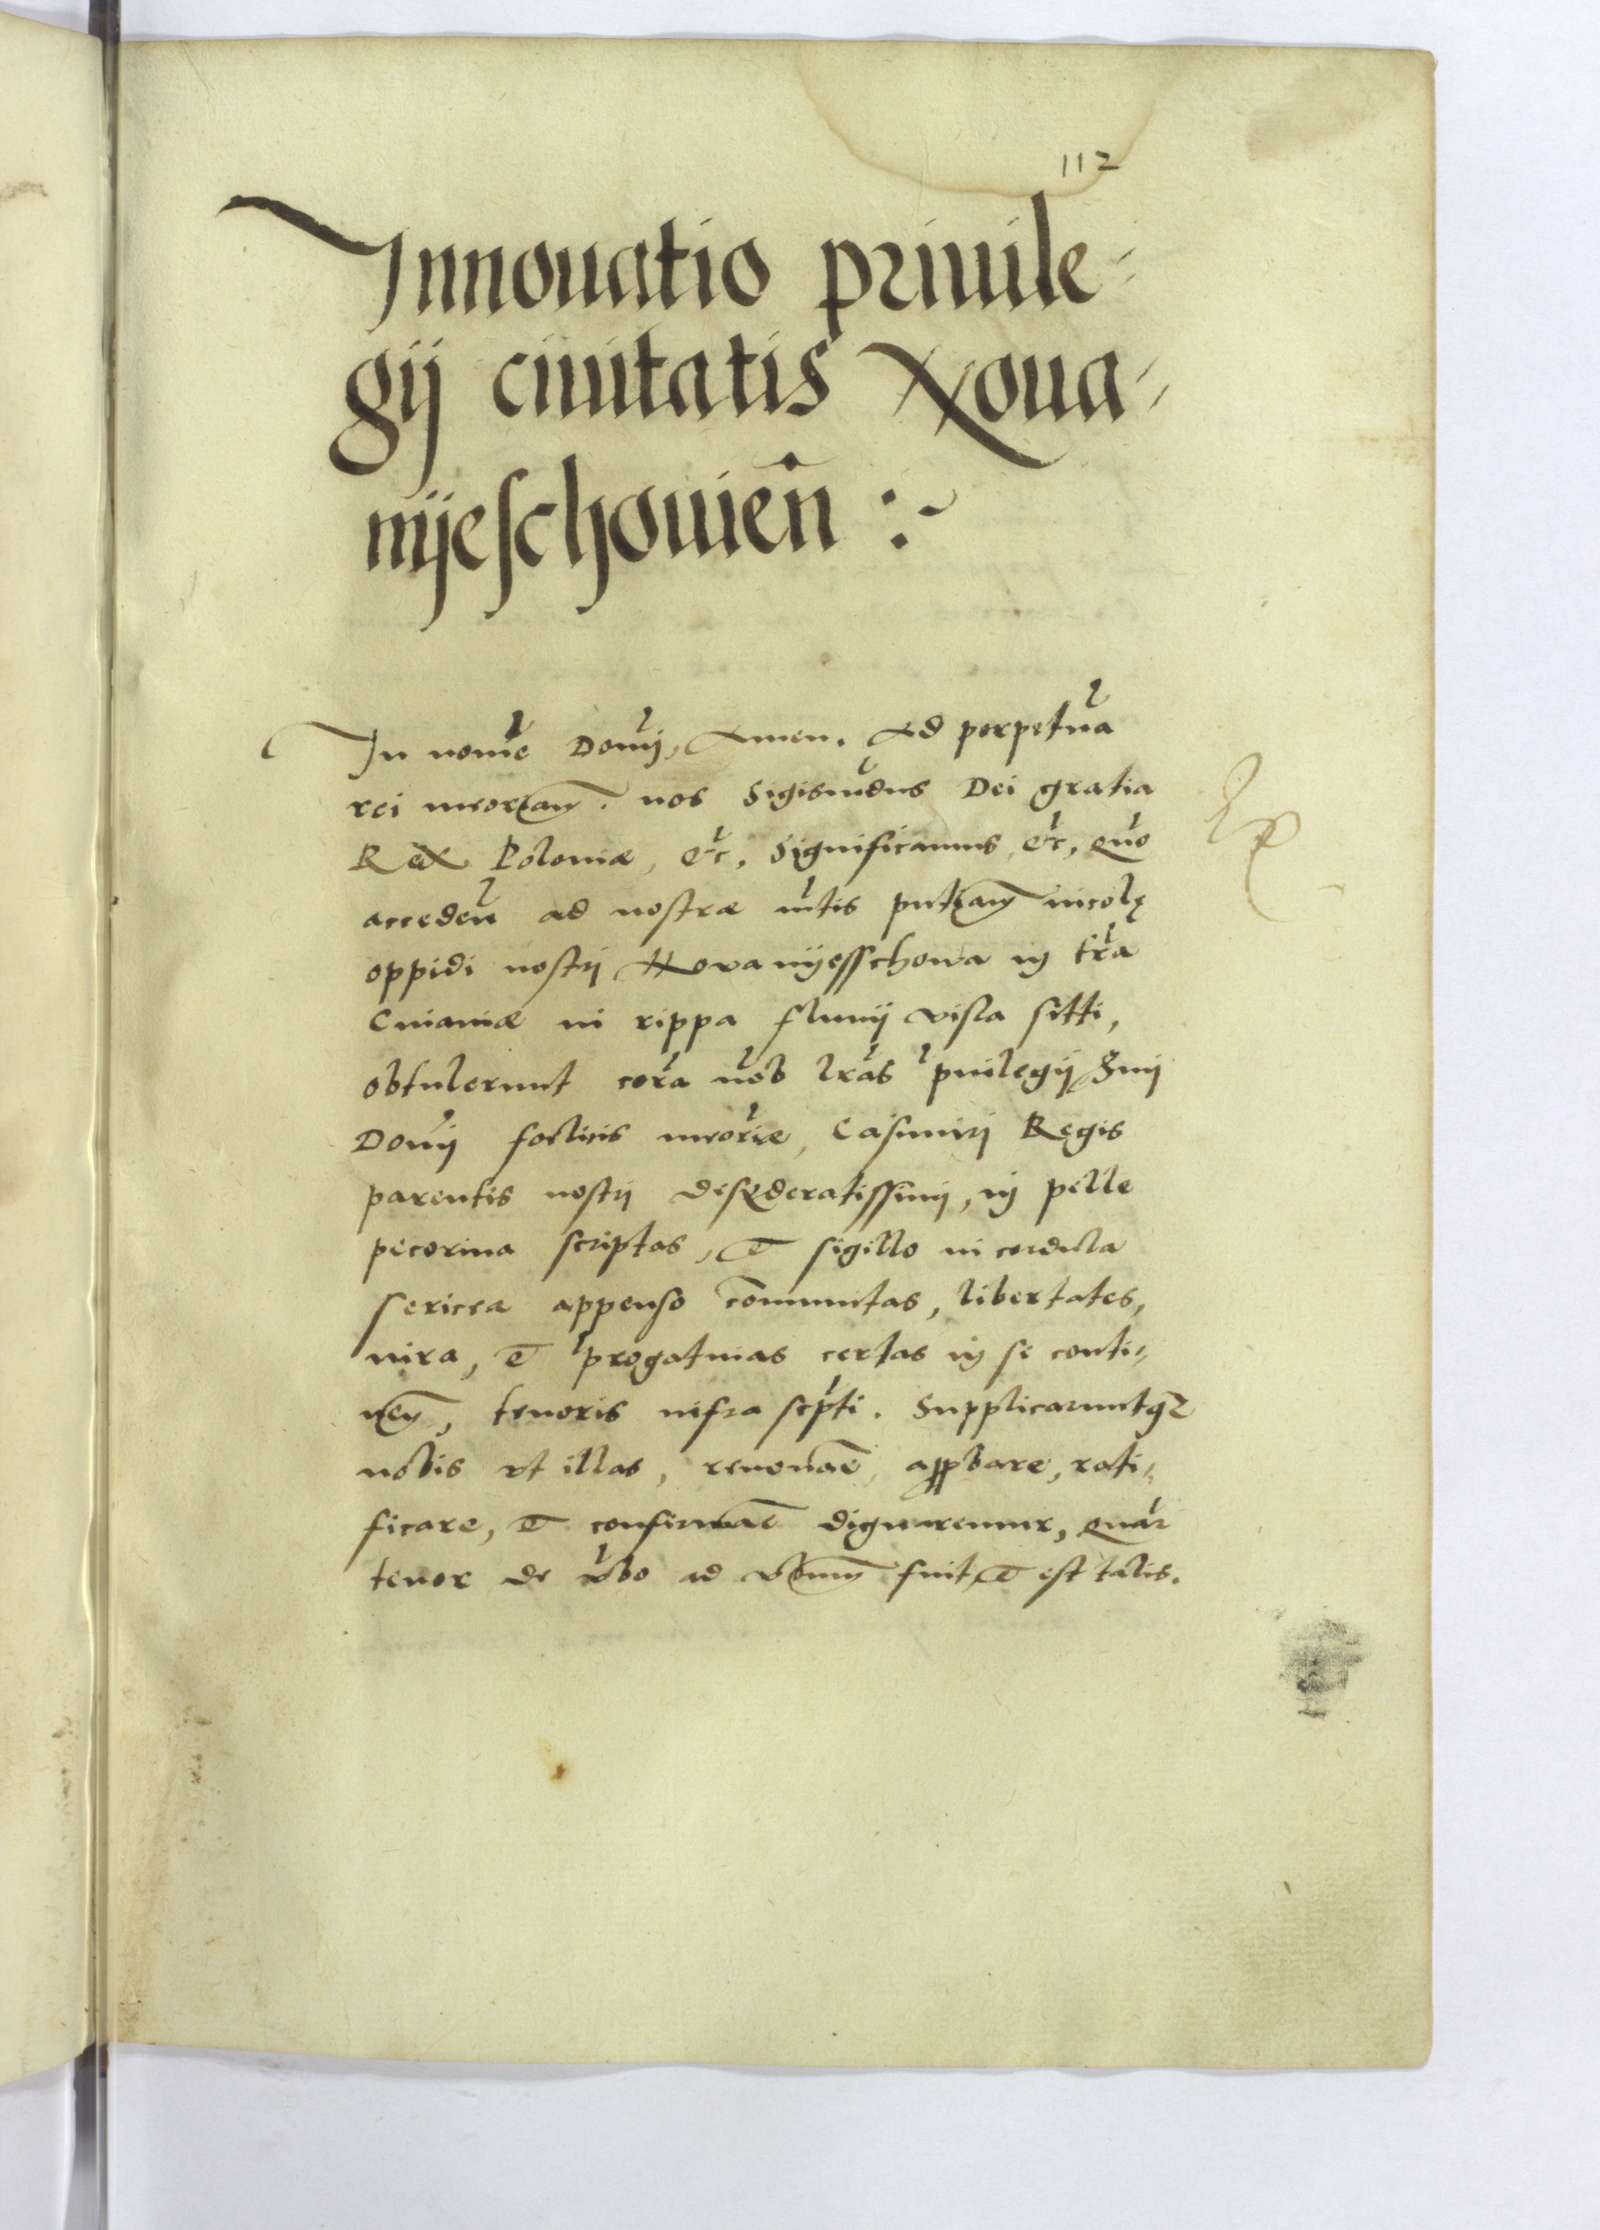 112
Innouatio priuile-
gij ciuitatis Noua-
nijeschouien̄ :~
In nom̄e Domī, Amen. Ad perpetuā
rei meoriam. nos Sigismūdus Dei gratia
Rex Poloniæ, etc. Significamus, etc, quō
acceden̄ ad nostræ mtis pntiam incolę
oppidi nostri Nova nijesschowa in trā
Cuiaviæ in rippa fluuij visla sitti,
obtulerunt corā nob lrās priuilegij Smi
Domī foelicis meoriæ, Casimiri Regis
parentis nostri desyderatissimi, in pelle
pecorina scriptas, et sigillo in cordula
sericea appenso com̄unitas, libertates,
iura, et progatiuas certas in se conti-
nen, tenoris infra scpti. Supplicaruntqz
nobis ut illas, renouāe, approbare, rati-
ficare, et confirmāe dignaremur, quar
tenor de vbo ad vbum fuit et est talis.